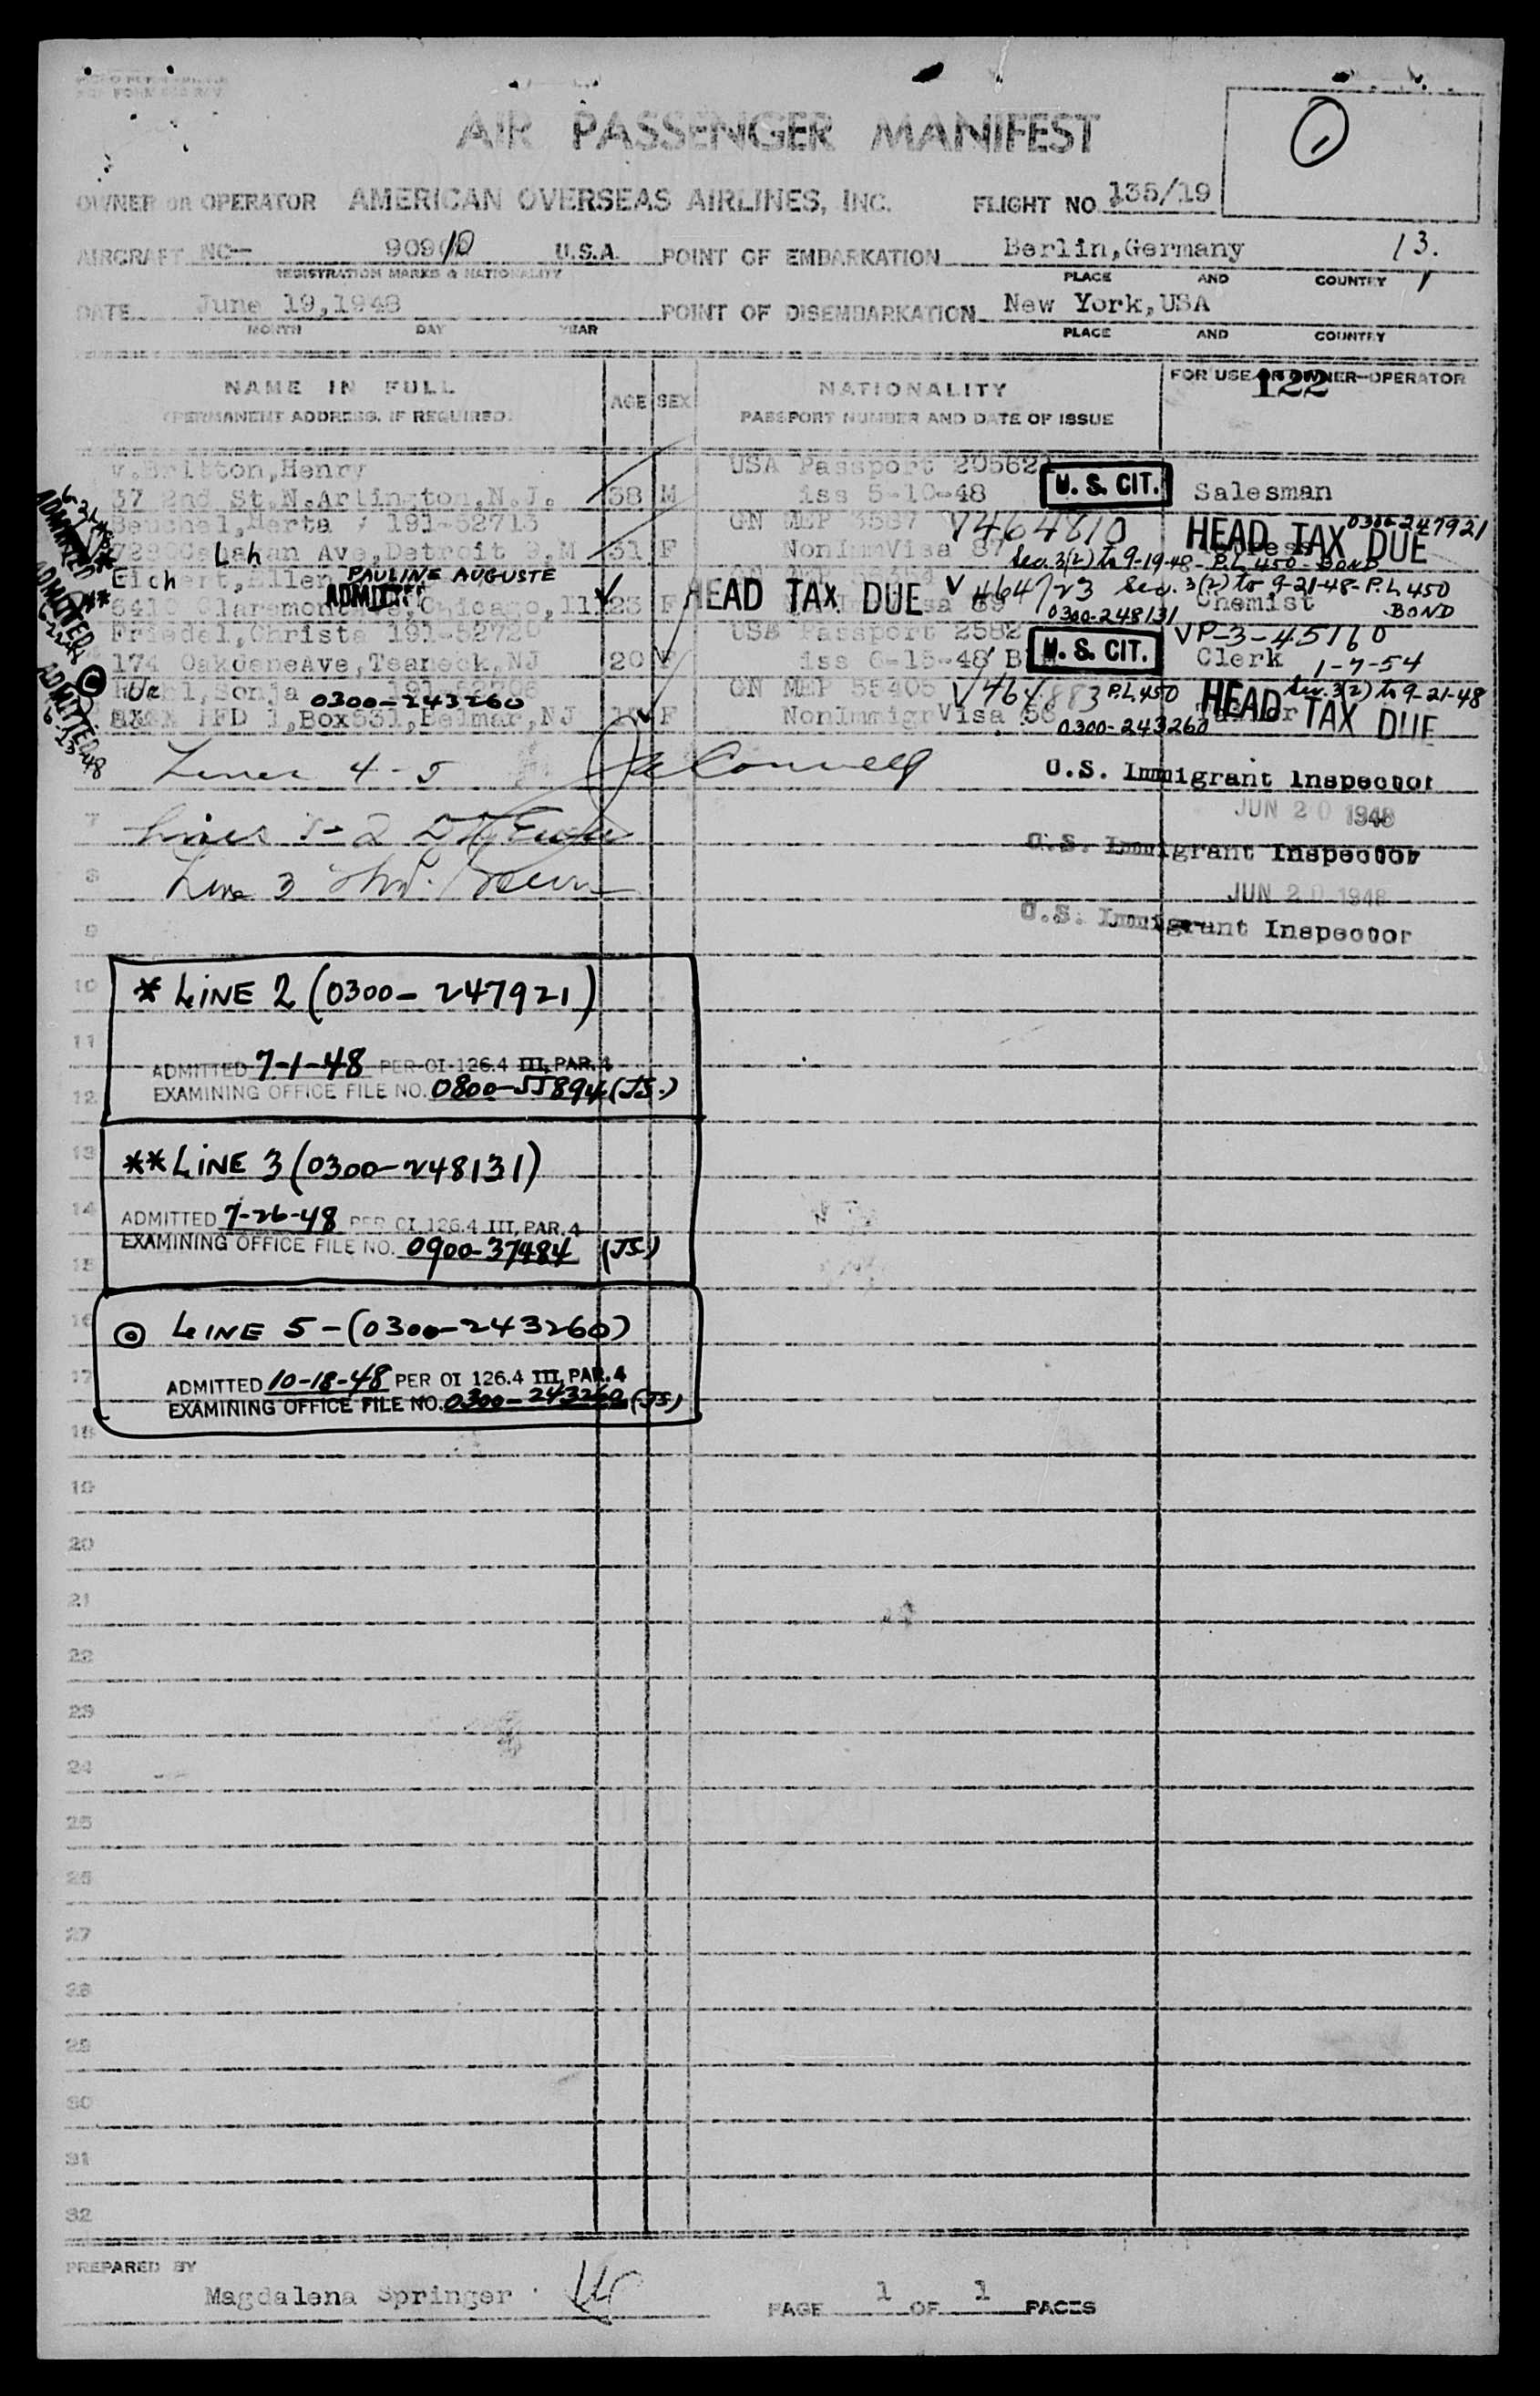 AIR PASSENGER MANIFEST
OWNER OR OPERATOR AMERICAN OVERSEAS AIRLINES, INC. FLIGHT NO 135/19
AIRCRAFT NC- 90910 U.S.A. POINT OF EMBARKATION Berlin,Germany 13.
REGISTRATION MARKS & NATIONALITY PLACE AND COUNTRY
DATE June 19,1948 POINT OF DISEMBARKATION New York,USA
MONTH DAY YEAR PLACE AND COUNTRY
NAME IN FULL AGE SEX NATIONALITY FOR USE OF OWNER-OPERATOR
122
(PERMANENT ADDRESS, IF REQUIRED) PASSPORT NUMBER AND DATE OF ISSUE
v.Britton,Henry USA Passport 20562
37 2nd St.N.Arlington,N.J. 38 M iss 5-10-48 U.S. CIT. Salesman
Beuchel,Herta 191-52713 GN MEP 3587 V464810 HEAD TAX DUE 0300-247921
Ave,Detroit 9,M 31 F NonImmVisa 87 Sec. 3(2) to 9-19-48- P.L. 450- BOND
Eichert,Ellen PAULINE AUGUSTE V464723 Sec. 3(2) to 9-21-48-P.L 450
6410 Claremont ADMITTED Chicago,Ill 23 F HEAD TAX DUE 89 0300-248131 Chemist BOND
Friedel,Christa 191-52720 USA Passport 2582 VP-3-45160
174 OakdeneAve,Teaneck,NJ 20 F iss 6-15-48 U.S. CIT. Clerk 1-7-54
Sonja 191-52708 GN MEP 55405 V464883 P.L 450 HEAD TAX DUE Sec. 3(2) to 9-21-48
0300-243260
RFD 1,Box531,Belmar,NJ F NonImmigrVisa 0300-243260
Lines 4-5 McConnell U.S. Immigrant Inspector
JUN 20 1948
7 Lines 1-2
U.S. Immigrant Inspector
8 Line 3
JUN 20 1948
U.S. Immigrant Inspector
9
10 * LINE 2 (0300-247921)
11
ADMITTED 7-1-48 PER OI 126.4 III, PAR. 4
12 EXAMINING OFFICE FILE NO. 0800-55894 (JS.)
13 ** LINE 3 (0300-248131)
14 ADMITTED 7-26-48 PER OI 126.4 III, PAR. 4
EXAMINING OFFICE FILE NO. 0900-37484 (JS)
15
16 LINE 5-(0300-243260)
17 ADMITTED 10-18-48 PER OI 126.4 III, PAR. 4
EXAMINING OFFICE FILE NO. 0300-243260 (JS)
18
19
20
21
22
23
24
25
26
27
28
29
30
31
32
PREPARED BY
Magdalena Springer
PAGE 1 OF 1 PAGES